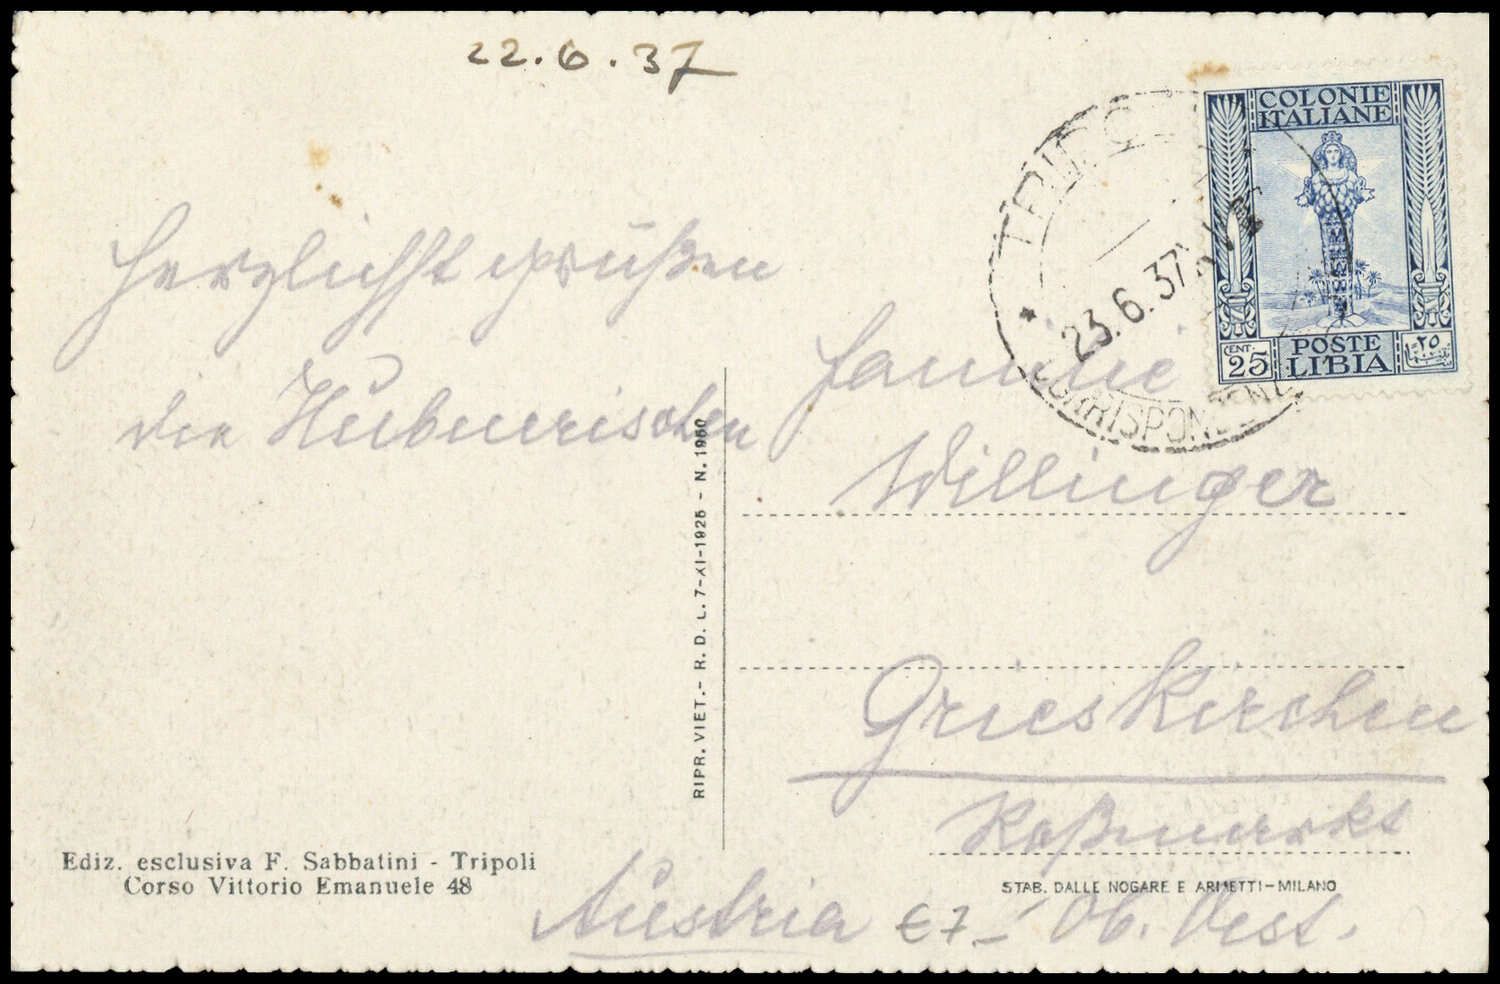 22.6.37
COLONIE
ITALIANE
CENT. 25
POSTE
LIBIA
٢٥
TRIPOLI
23.6.37 XV
CORRISPONDENZE
Herzlichst grüßen
die Hubnerischen
Familie
Willinger
Grieskirchen
Roßmarkt
Austria Ob. Oest.
€ 7.-
RIPR. VIET. - R. D. L. 7-XI-1925 - N. 1950
Ediz. esclusiva F. Sabbatini - Tripoli
Corso Vittorio Emanuele 48
STAB. DALLE NOGARE E ARMETTI-MILANO